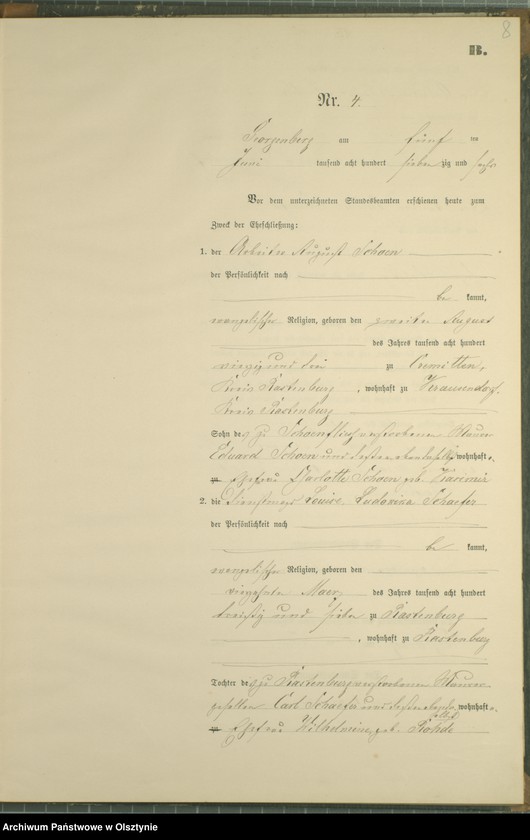 8
B.
Nr. 4.
Georgenberg am fünf ten
Juni tausend acht hundert sieben zig und sechs
Vor dem unterzeichneten Standesbeamten erschienen heute zum
Zweck der Eheschließung:
1. der Arbeiter August Schoen
der Persönlichkeit nach
be kannt,
evangelischer Religion, geboren den zweiten August
des Jahres tausend acht hundert
vierzig und drei zu Cremitten,
Kreis Rastenburg, wohnhaft zu
Kreis Rastenburg
Sohn des zu verstorbenen
Eduard Schoen und dessen wohnhaft
zu Ehefrau Charlotte Schoen geb.
2. die Dienstmagd Louise Ludowika Schaefer
der Persönlichkeit nach
be kannt,
evangelischer Religion, geboren den
vierzehnten Maerz des Jahres tausend acht hundert
dreißig und sieben zu Rastenburg
, wohnhaft zu Rastenburg
Tochter des zu Rastenburg verstorbenen Maurer-
gesellen Carl Schaefer und dessen wohnhaft
zu Ehefrau Wilhelmine geb. Rohde
Archiwum Państwowe w Olsztynie